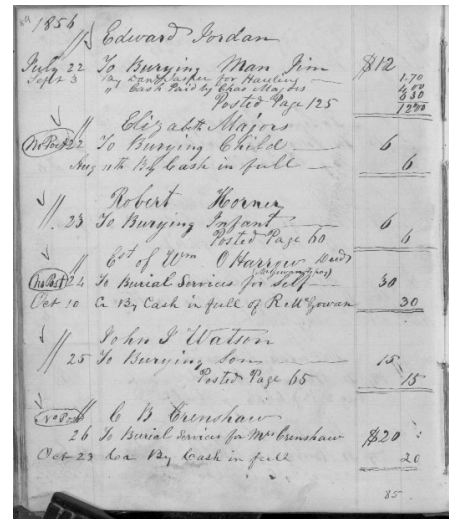 1856
Edward Jordan
July 22 To Burying Man Jim $12
Sept 3 By for Hauling 1.70
" Cash Paid by Chas Majors 4.00
Posted Page 125 6 30
12 00
Elizabeth Majors
No Post 22 To Burying Child 6
Aug 11th By Cash in full 6
Robert Horner
" 23 To Burying Infant 6
Posted Page 60 6
Est of Wm O Harrow Decd
No Post 24 To Burial Services for self 30
Oct 10 Cr By Cash in full of R McGowan 30
John J Watson
" 25 To Burying Son 15
Posted Page 65 15
No Post C B Crenshaw
26 To Burial Services for Mrs Crenshaw $20
Oct 23 Cr By Cash in full 20
85